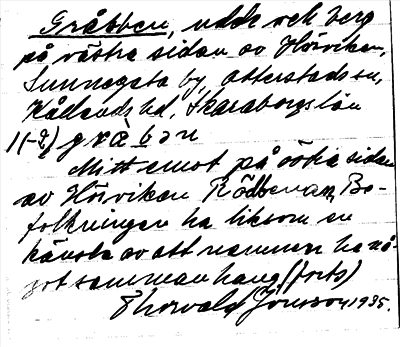 Gråbben, udde och berg
på västra sidan av Hörviken,
Sunnegata by, Otterstads sn,
Kållands hd, Skaraborgs län
1(-2) gräbən
Mitt emot på östra sidan
av Hörviken Rödbenan. Be-
folkningen ha liksom en
känsla av att namnen ha nå-
got sammanhang. (forts)
Thorvald Jonsson 1935.